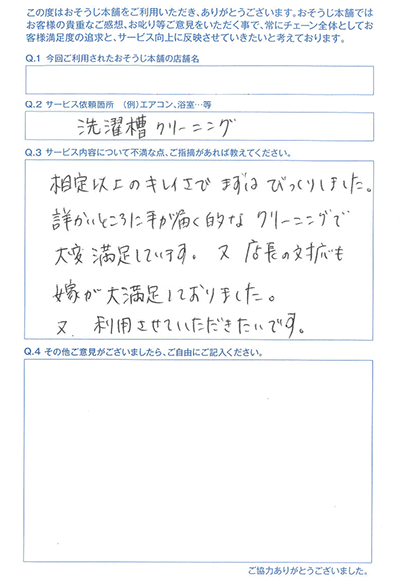 この度はおそうじ本舗をご利用いただき、ありがとうございます。おそうじ本舗では
お客様の貴重なご感想、お叱り等ご意見をいただく事で、常にチェーン全体としてお
客様満足度の追求と、サービス向上に反映させていきたいと考えております。
Q.1 今回ご利用されたおそうじ本舗の店舗名
Q.2 サービス依頼箇所 (例)エアコン、浴室…等
洗濯槽クリーニング
Q.3 サービス内容について不満な点、ご指摘があれば教えてください。
相定以上のキレイさで まずは びっくりしました。
詳かいところに手が届く的な クリーニングで
大変満足しています。 又 店長の対応も
嫁が大満足しておりました。
又、利用させていただきたいです。
Q.4 その他ご意見がございましたら、ご自由にご記入ください。
ご協力ありがとうございました。